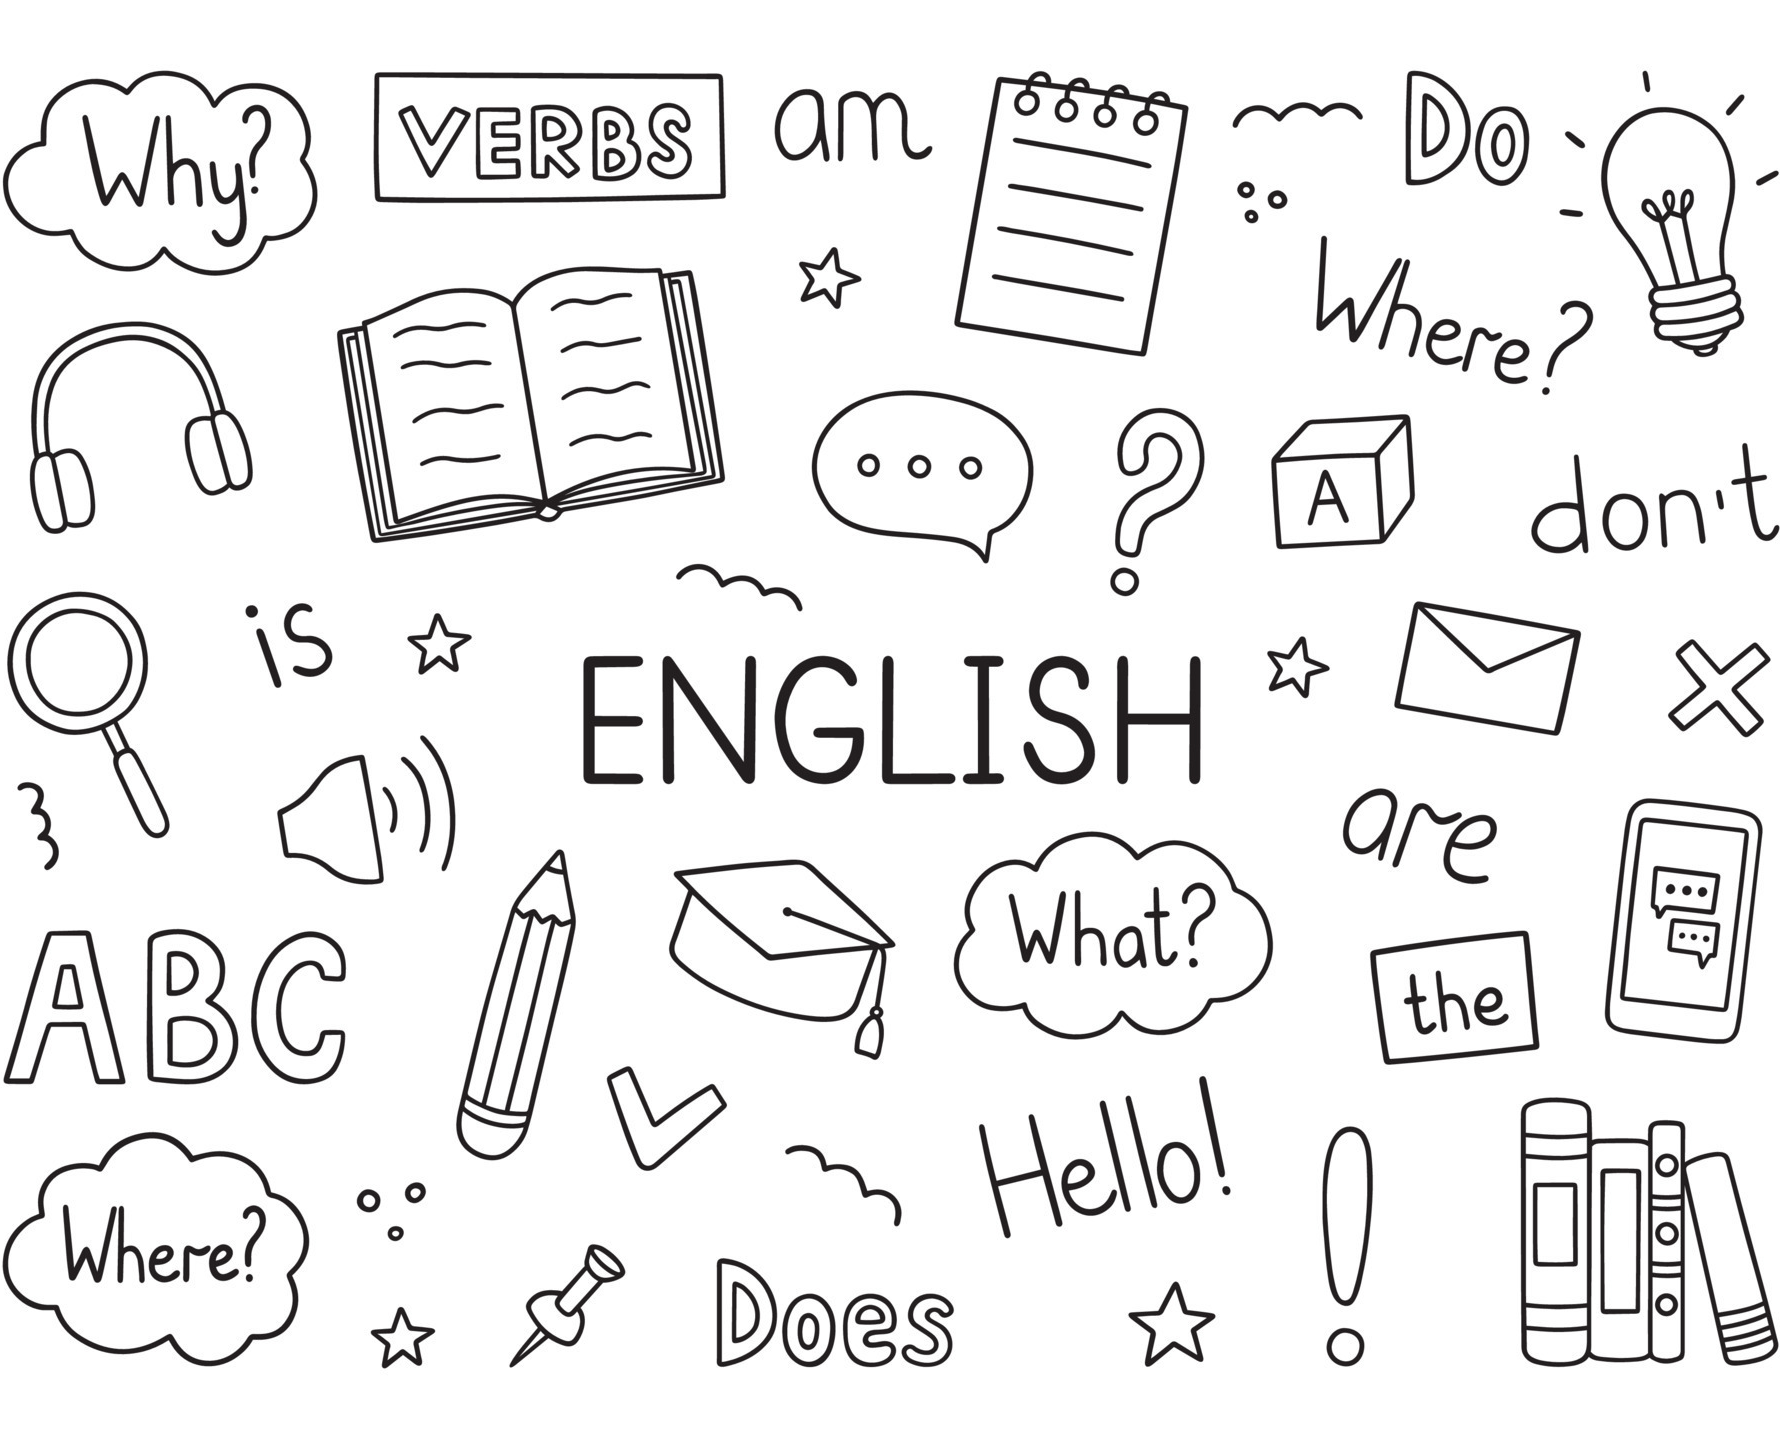 Why?
VERBS
am
Do
Where?
A
don't
is
ENGLISH
are
ABC
What?
the
Hello!
Where?
Does